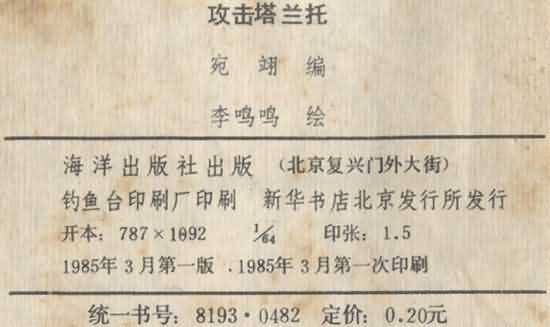 攻击塔兰托
宛 翊 编
李鸣鸣 绘
海洋出版社出版 (北京复兴门外大街)
钓鱼台印刷厂印刷 新华书店北京发行所发行
开本: 787×1092 1/64 印张: 1.5
1985年3月第一版 .1985年3月第一次印刷
统一书号: 8193·0482 定价: 0.20元